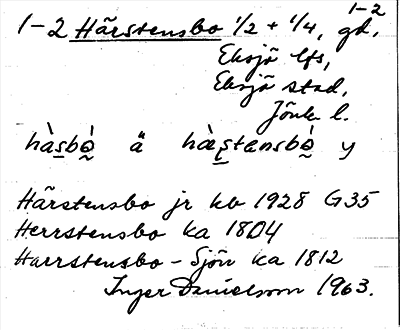 1-2 Härstensbo 1/2 + 1/4, gd, 1-2
Eksjö lfs,
Eksjö stad,
Jönk l.
hàsbò̰ ä hæ̀ʂtænsbò̰ y
Härstensbo jr kb 1928 G35
Herrstensbo ka 1804
Harrstensbo - Sjön ka 1812
Inger Danielsson 1963.